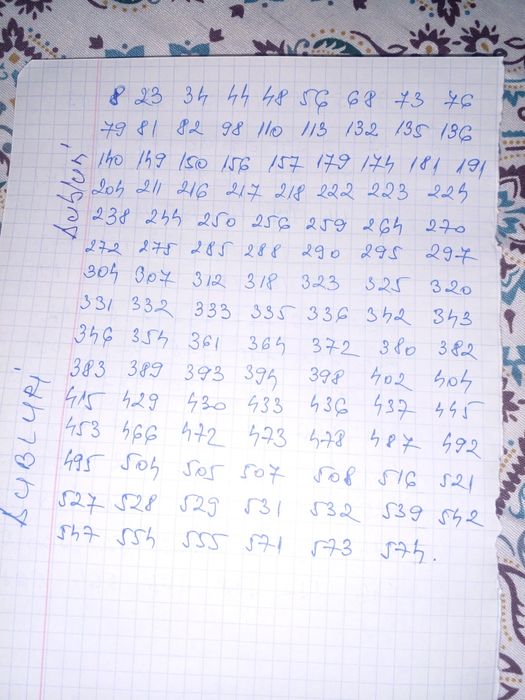 8 23 34 44 48 56 68 73 76
79 81 82 98 110 113 132 135 136
140 149 150 156 157 179 174 181 191
204 211 216 217 218 222 223 224
238 244 250 256 259 264 270
272 275 285 288 290 295 297
304 307 312 318 323 325 320
331 332 333 335 336 342 343
346 354 361 364 372 380 382
383 389 393 394 398 402 404
415 429 430 433 436 437 445
453 466 472 473 478 487 492
495 504 505 507 508 516 521
527 528 529 531 532 539 542
547 554 555 571 573 574.